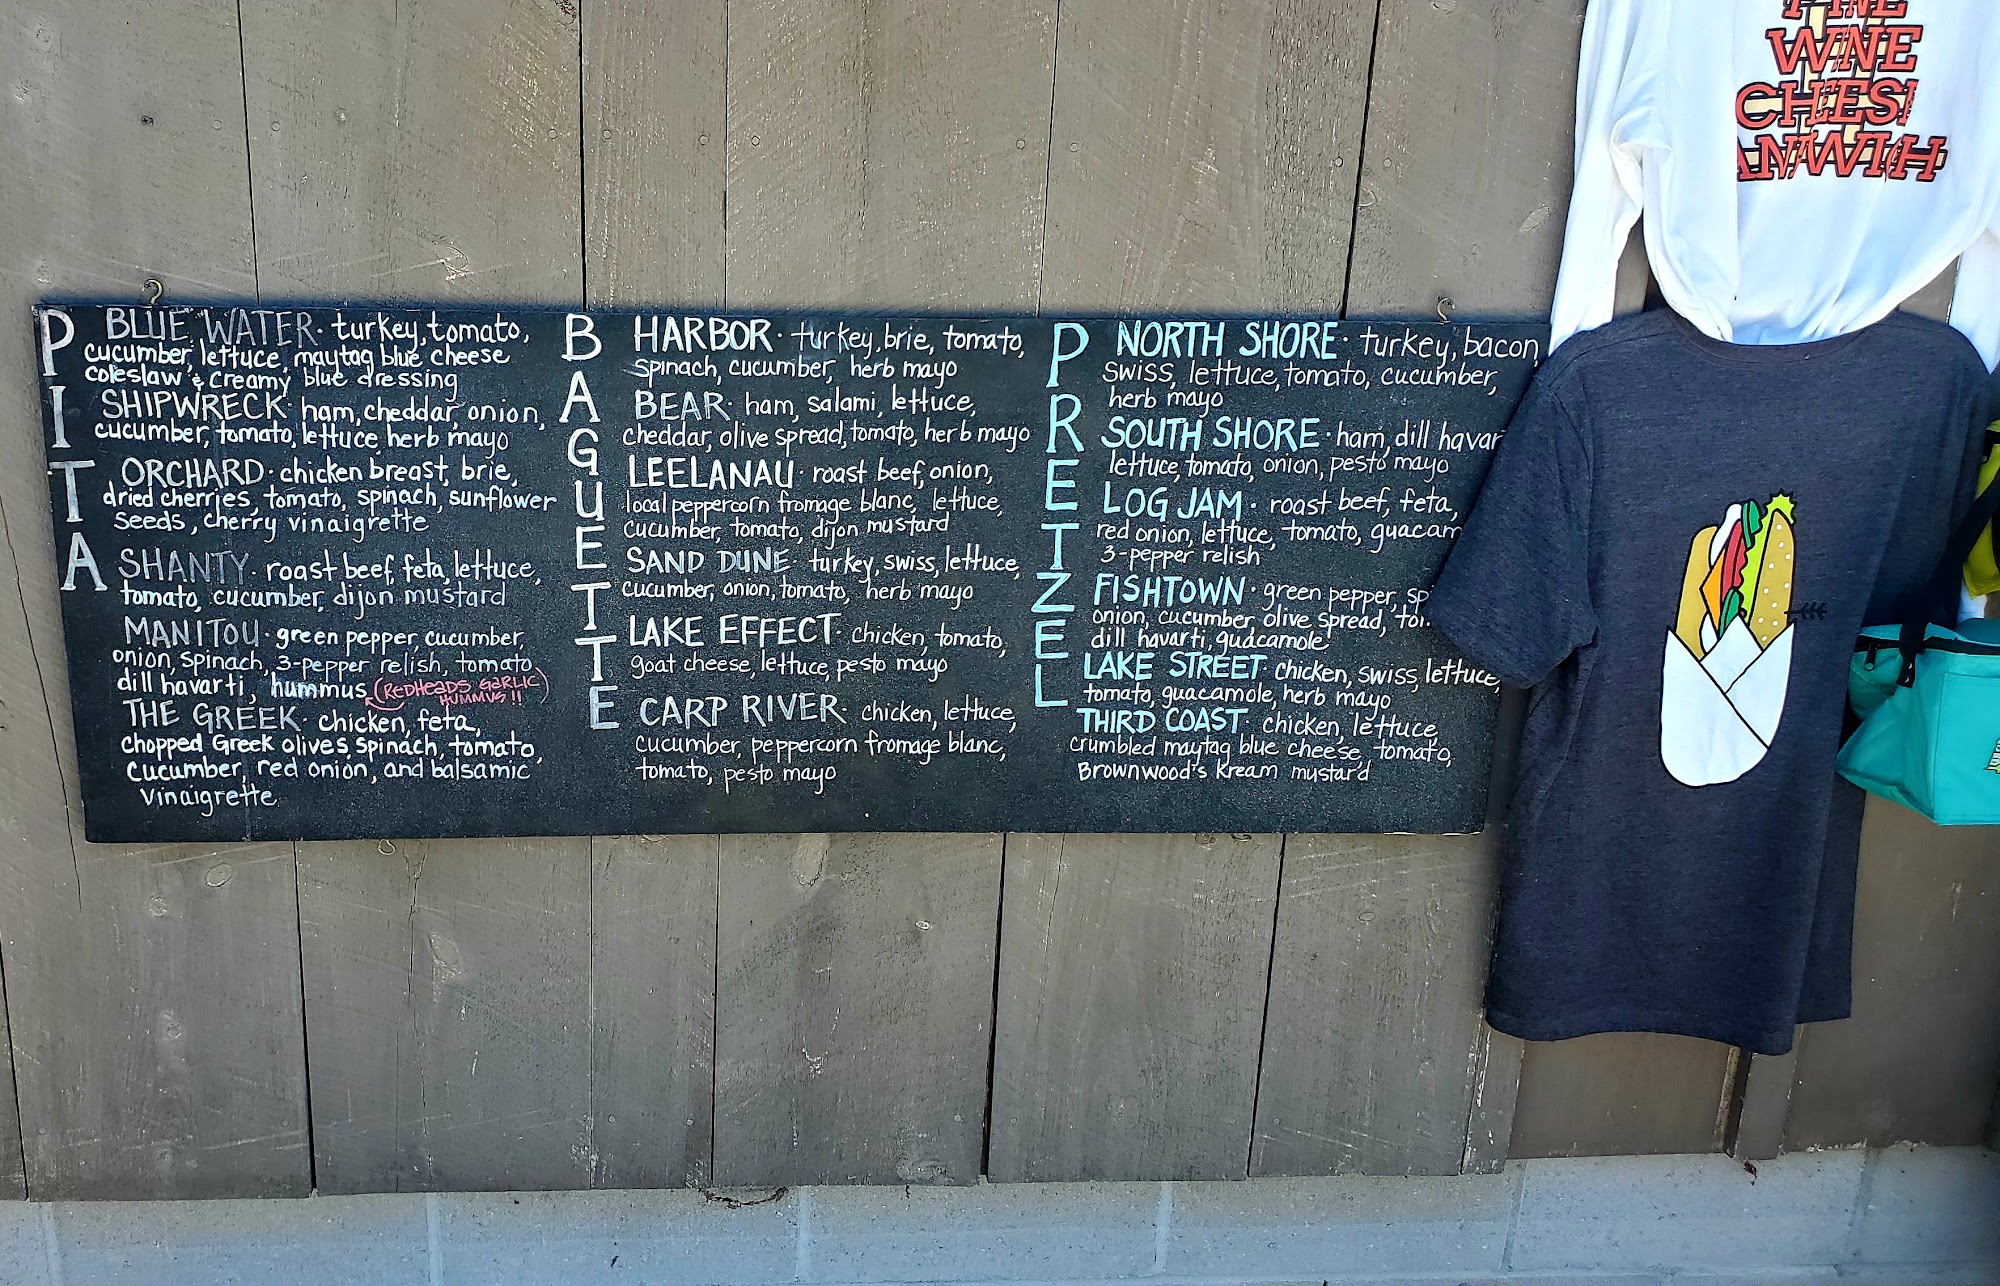 PITA
BLUE WATER· turkey, tomato,
cucumber, lettuce, maytag blue cheese
coleslaw & creamy blue dressing
SHIPWRECK· ham, cheddar, onion,
cucumber, tomato, lettuce herb mayo
ORCHARD· chicken breast, brie,
dried cherries, tomato, spinach, sunflower
seeds, cherry vinaigrette
SHANTY· roast beef, feta, lettuce,
tomato, cucumber, dijon mustard
MANITOU· green pepper, cucumber,
onion, spinach, 3-pepper relish, tomato,
dill havarti, hummus (REDHEADS GARLIC
HUMMUS!!)
THE GREEK· chicken, feta,
chopped Greek olives spinach, tomato,
cucumber, red onion, and balsamic
vinaigrette
BAGUETTE
HARBOR· turkey, brie, tomato,
spinach, cucumber, herb mayo
BEAR· ham, salami, lettuce,
cheddar, olive spread, tomato, herb mayo
LEELANAU· roast beef, onion,
local peppercorn fromage blanc, lettuce,
cucumber, tomato, dijon mustard
SAND DUNE· turkey, swiss, lettuce,
cucumber, onion, tomato, herb mayo
LAKE EFFECT· chicken, tomato,
goat cheese, lettuce, pesto mayo
CARP RIVER· chicken, lettuce,
cucumber, peppercorn fromage blanc,
tomato, pesto mayo
PRETZEL
NORTH SHORE· turkey, bacon
swiss, lettuce, tomato, cucumber,
herb mayo
SOUTH SHORE· ham, dill havar
lettuce, tomato, onion, pesto mayo
LOG JAM· roast beef, feta,
red onion, lettuce, tomato, guacam
3-pepper relish
FISHTOWN· green pepper, sp
onion, cucumber, olive spread, tom
dill havarti, guacamole
LAKE STREET chicken, swiss, lettuce,
tomato, guacamole, herb mayo
THIRD COAST· chicken, lettuce
crumbled maytag blue cheese, tomato,
Brownwood's Kream mustard
WINE
CHEES
ANDWICH